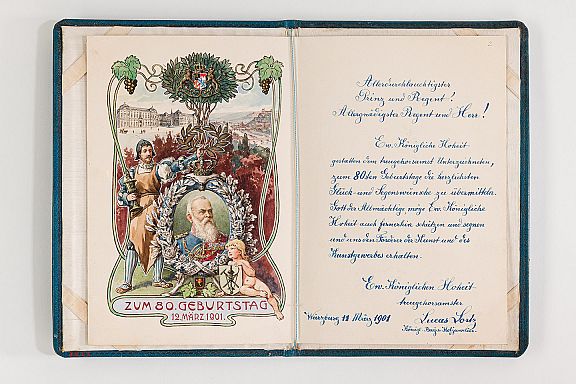 ZUM 80. GEBURTSTAG
12. MÄRZ 1901.
2
Allerdurchlauchtigster
Prinz und Regent!
Allergnädigster Regent und Herr!
Ew. Königliche Hoheit
gestatten dem treugehorsamst Unterzeichneten,
zum 80sten Geburtstage die herzlichsten
Glück- und Segenswünsche zu übermitteln.
Gott der Allmächtige möge Ew. Königliche
Hoheit auch fernerhin schützen und segnen
und uns den Förderer der Kunst und des
Kunstgewerbes erhalten.
Ew. Königlichen Hoheit
treugehorsamster
Würzburg 12 März 1901
Lucas
Königl. Bayr.